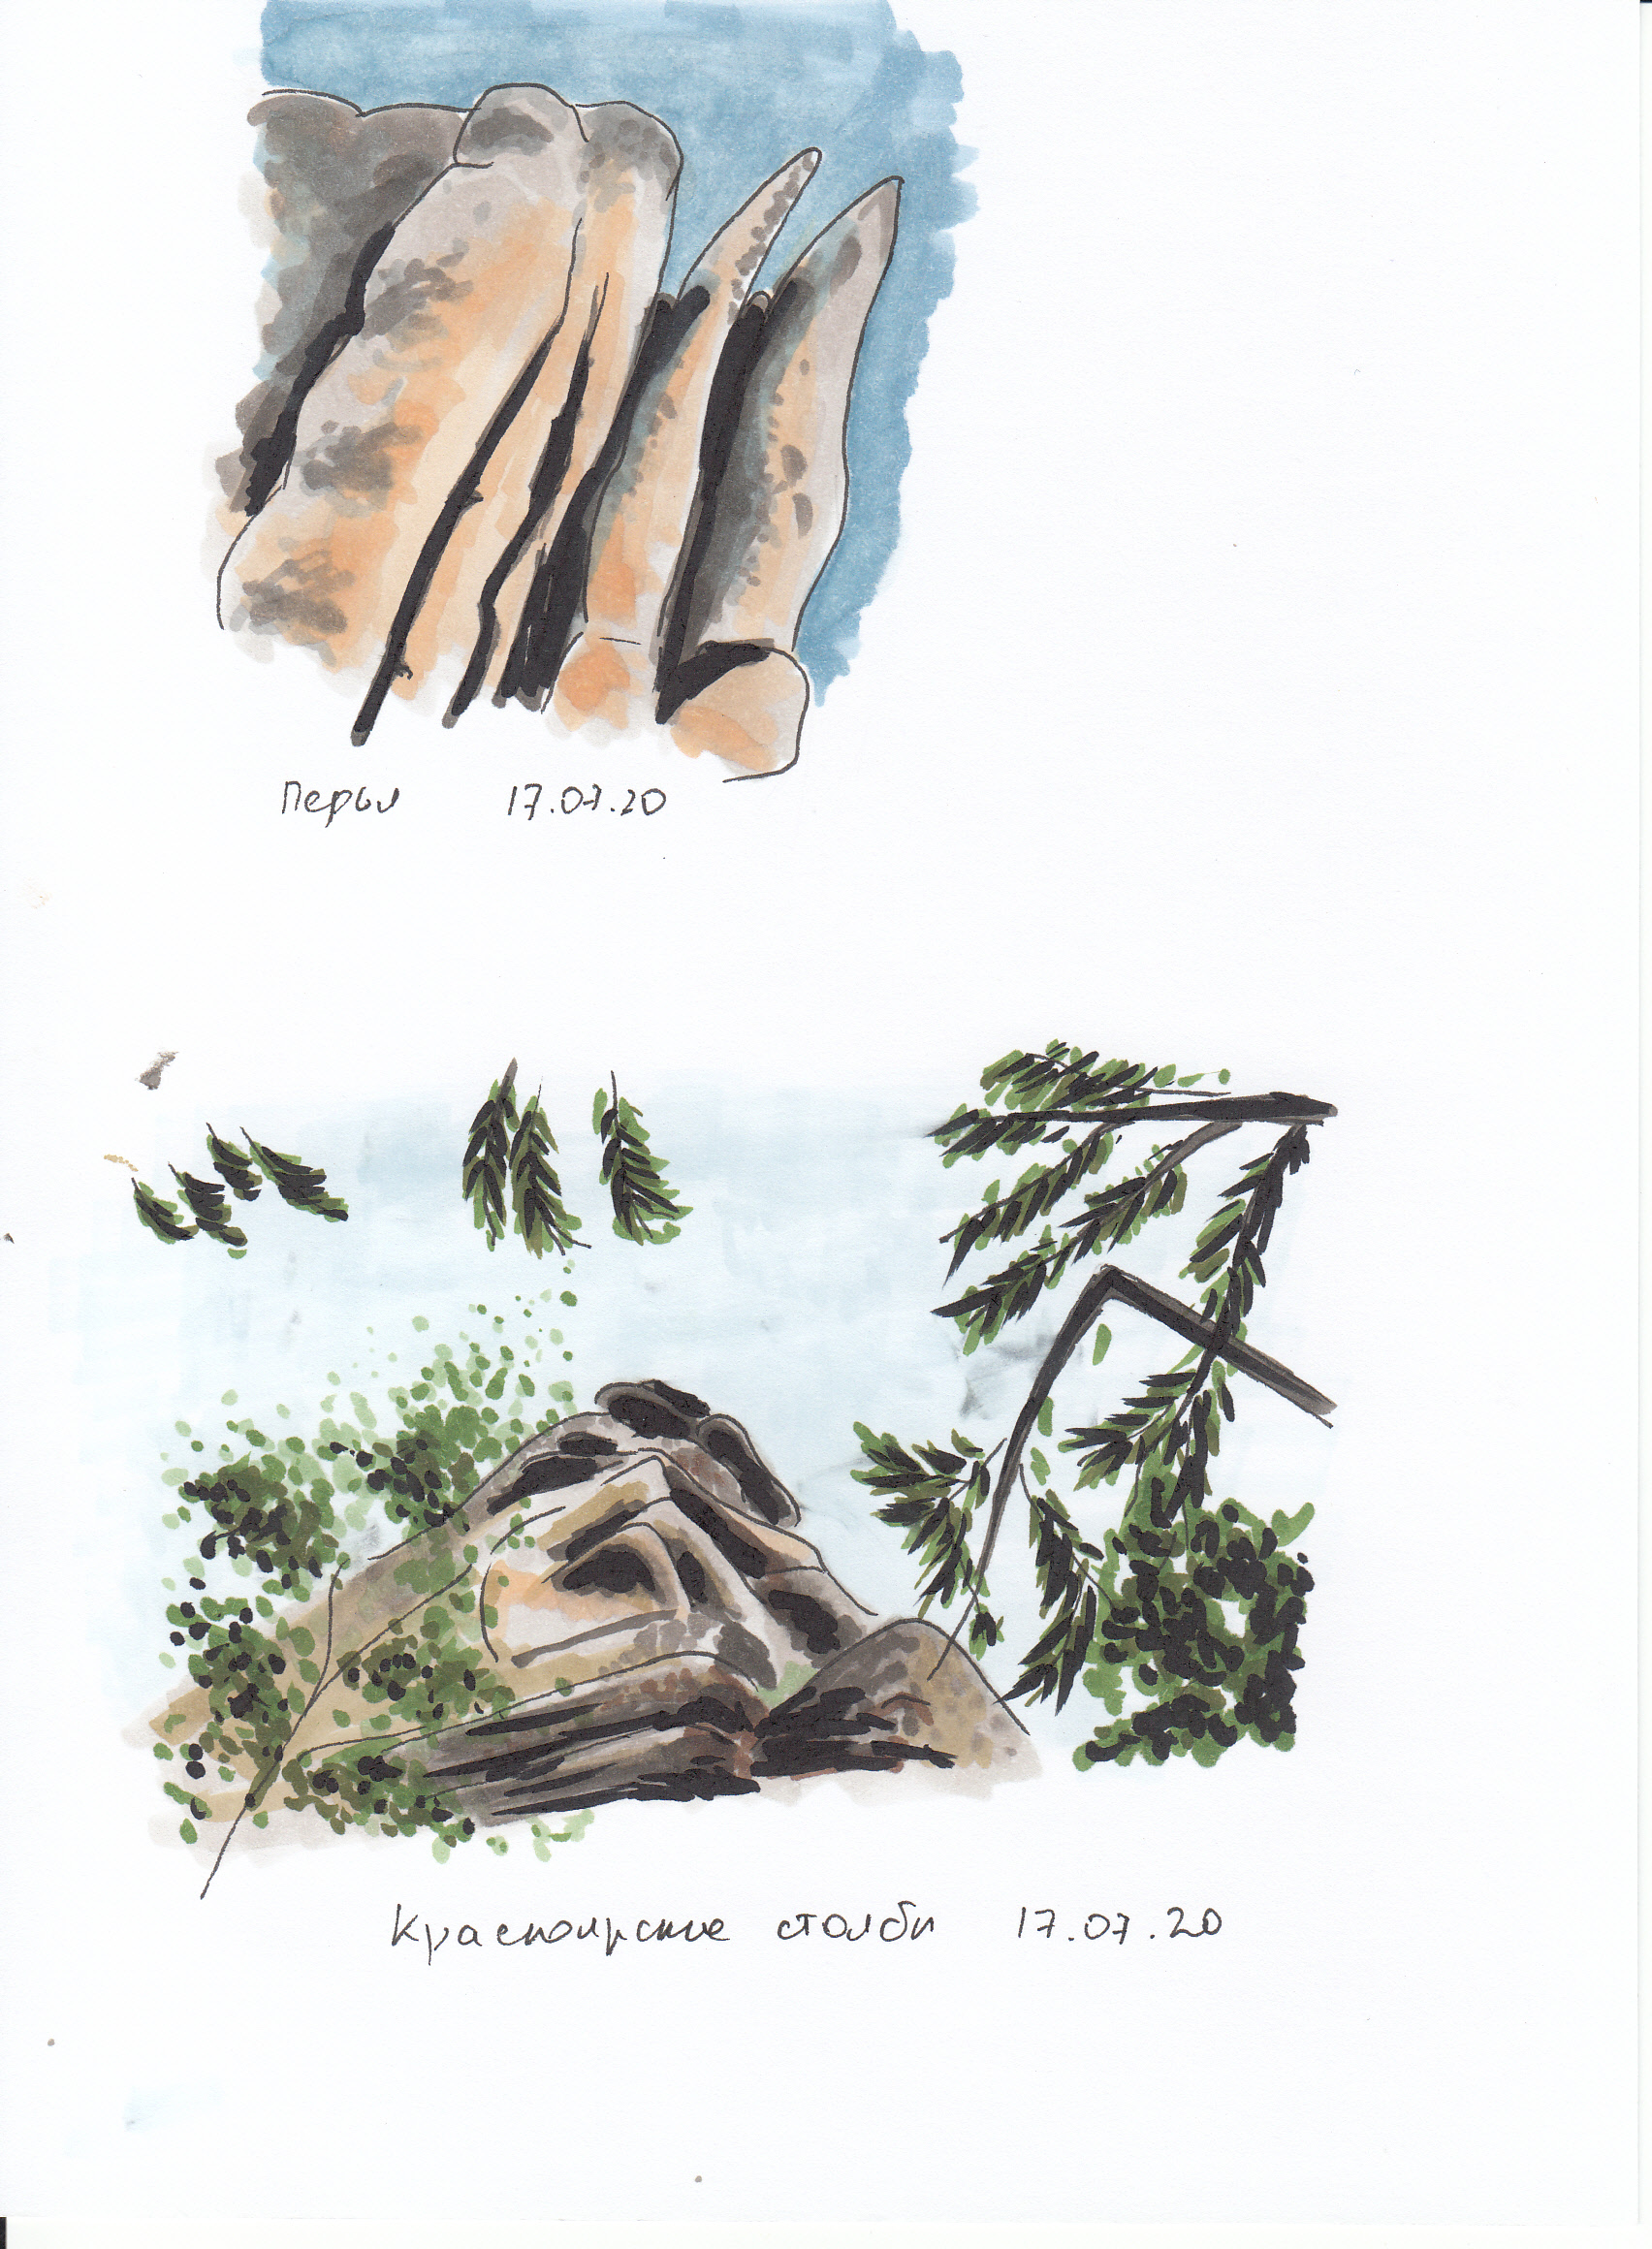 Перья 17.07.20
Красноярские столбы 17.07.20